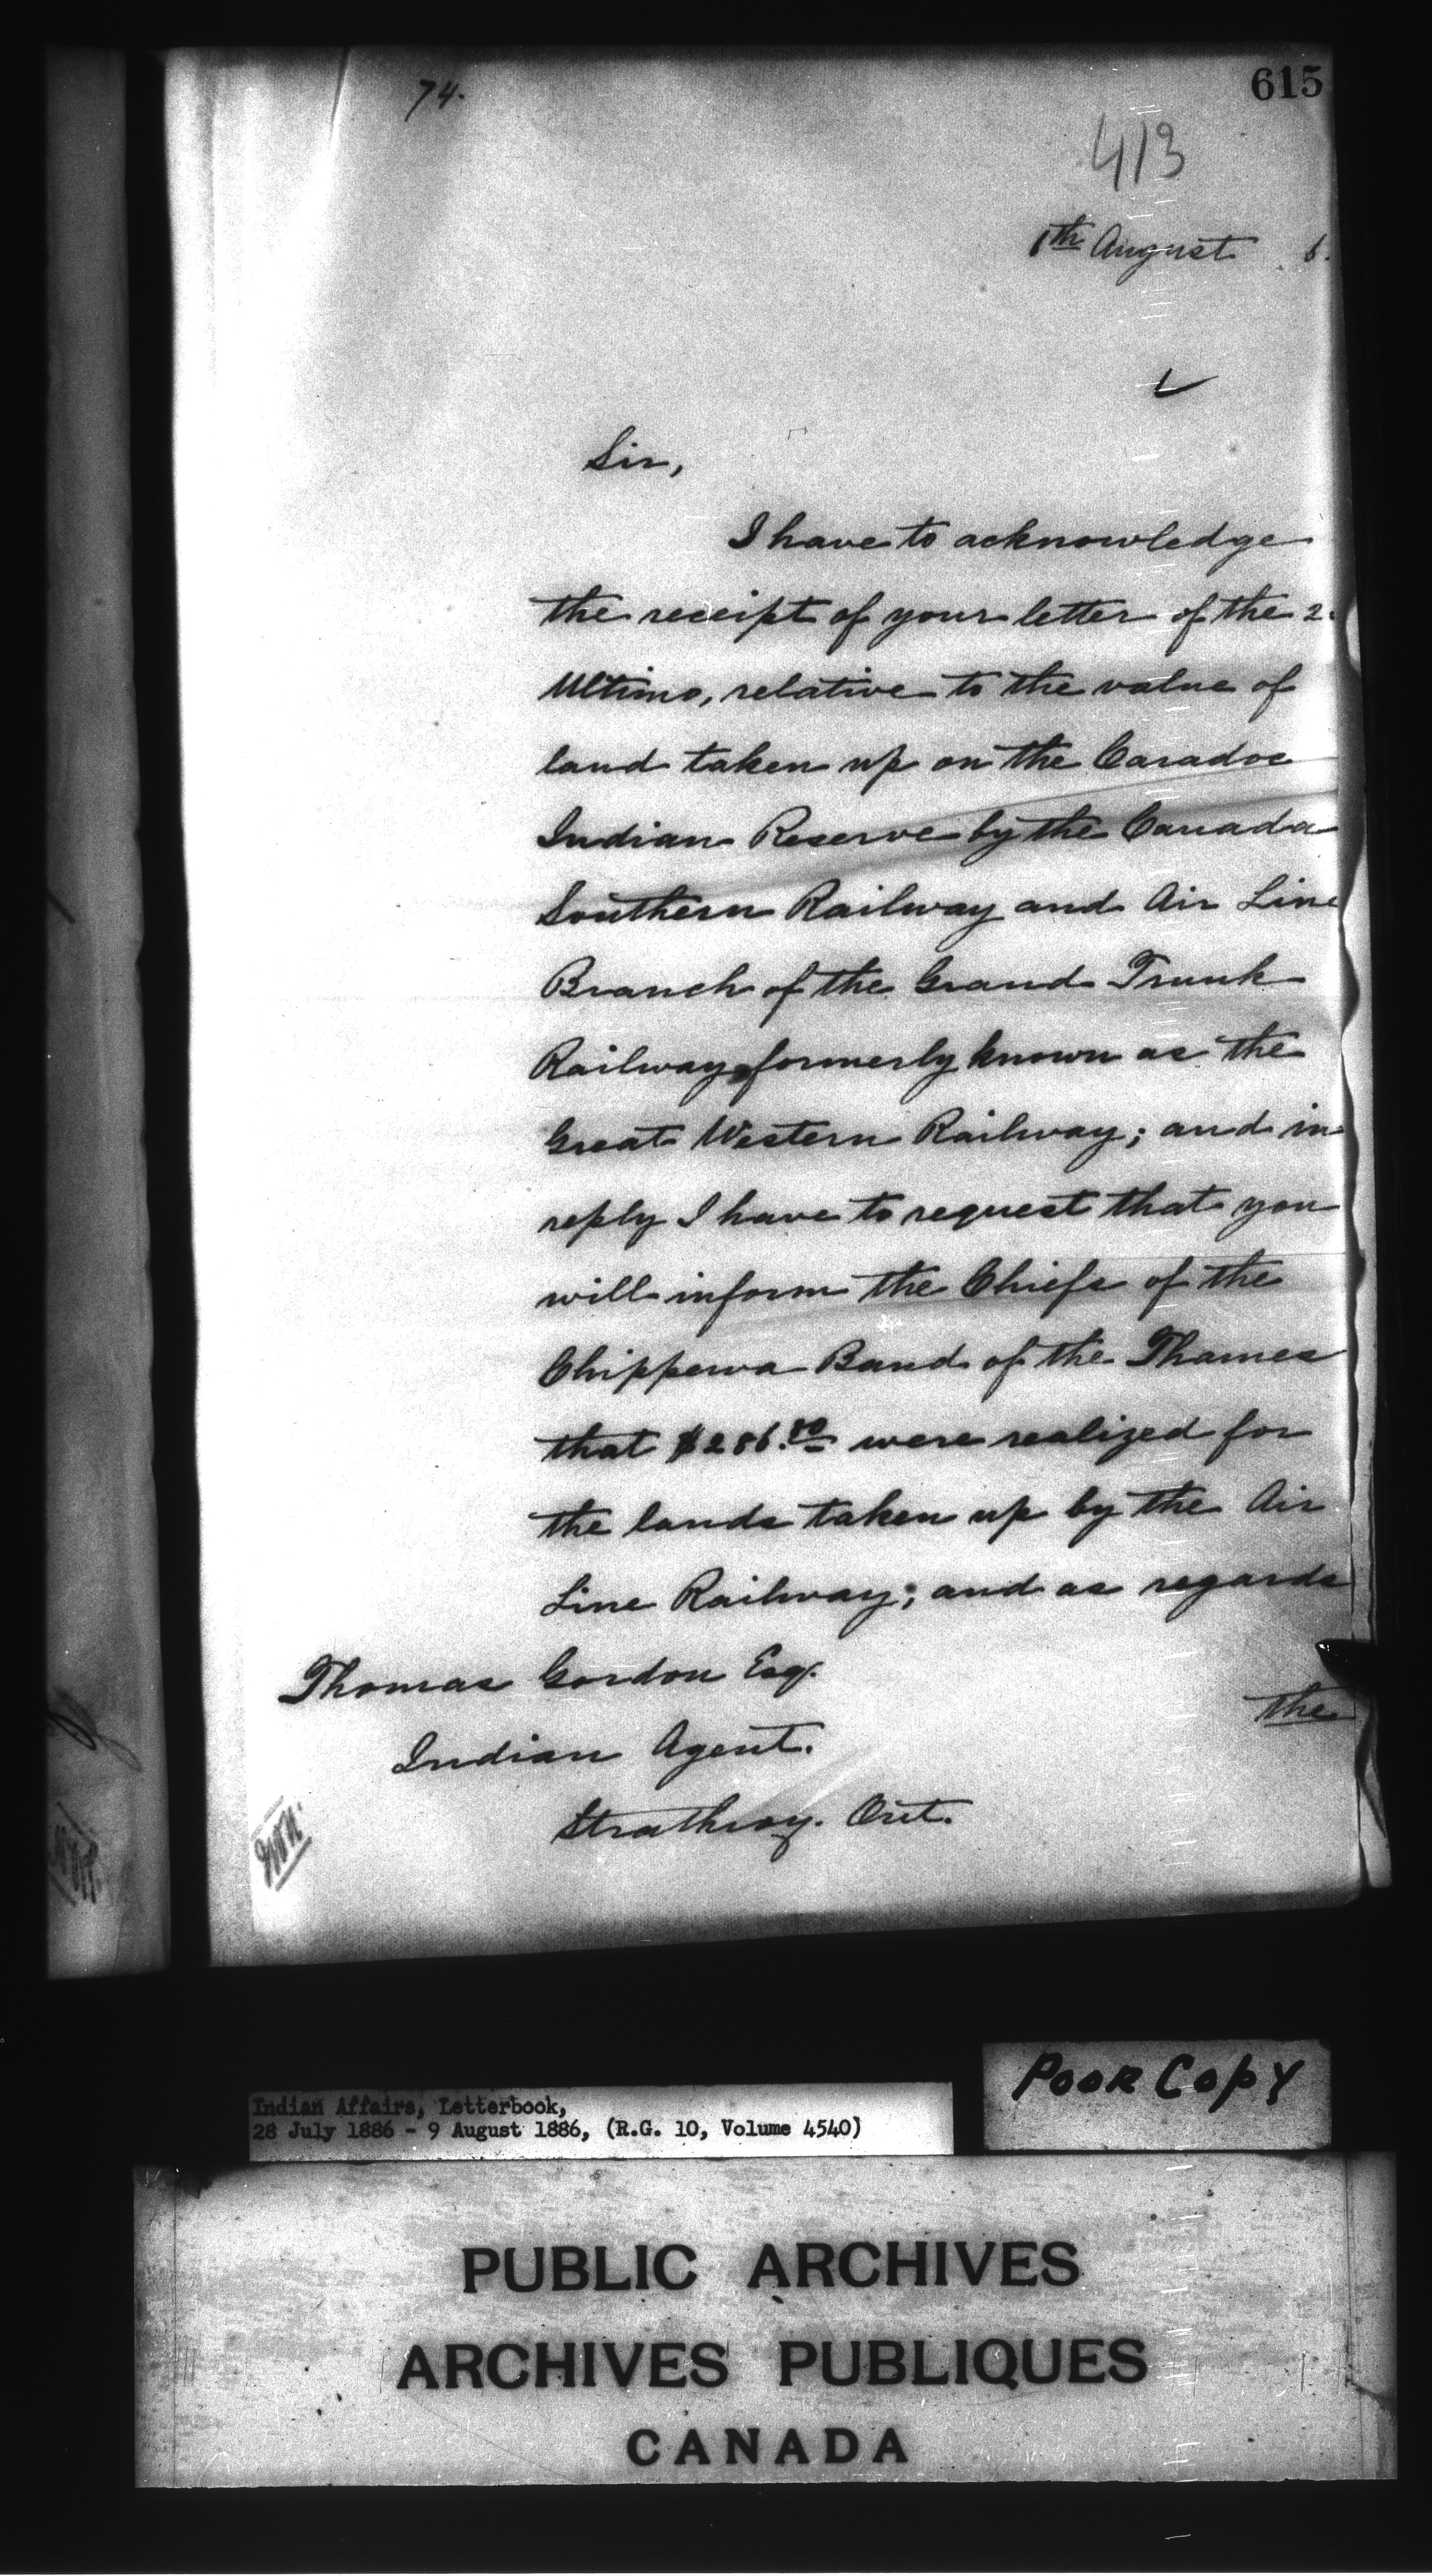 74.
615
413
6th August 6.
Sir,
I have to acknowledge
the receipt of your letter of the 2
Ultimo, relative to the value of
land taken up on the Caradoc
Indian Reserve by the Canada
Southern Railway and Air Line
Branch of the Grand Trunk
Railway formerly known as the
Great Western Railway; and in
reply I have to request that you
will inform the Chiefs of the
Chippewa Band of the Thames
that $286.80 were realized for
the lands taken up by the Air
Line Railway; and as regards
Thomas Gordon Esq.
the
Indian Agent.
Strathroy. Ont.
Poor Copy
Indian Affairs, Letterbook,
28 July 1886 - 9 August 1886, (R.G. 10, Volume 4540)
PUBLIC ARCHIVES
ARCHIVES PUBLIQUES
CANADA